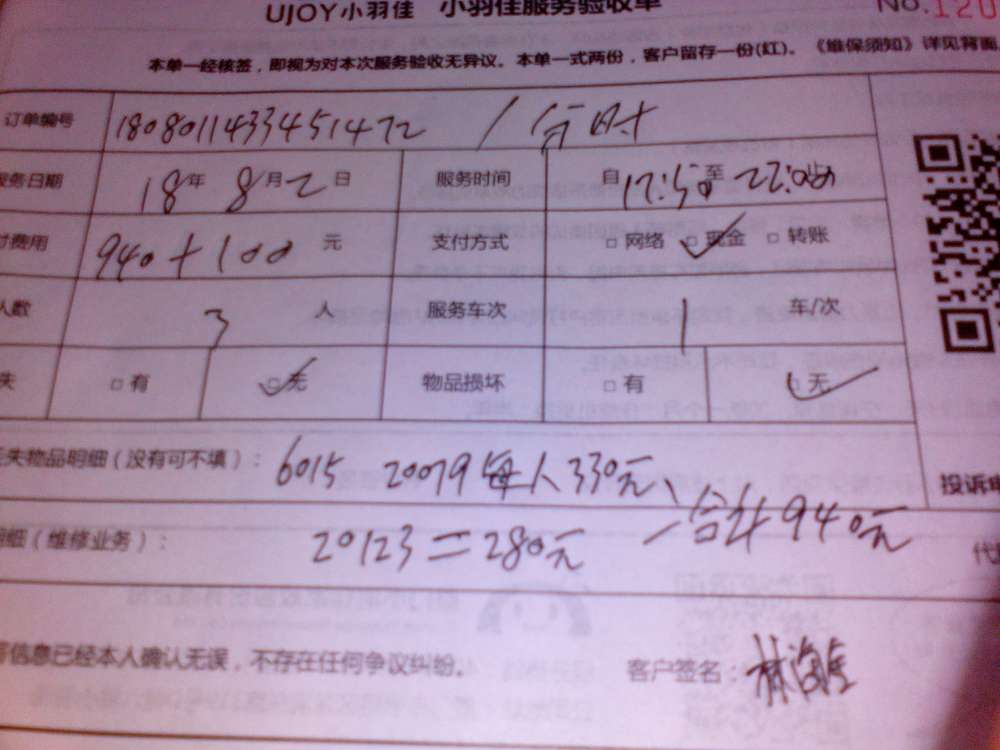 UJOY小羽佳 小羽佳服务验收单 No.120
本单一经核签，即视为对本次服务验收无异议。本单一式两份，客户留存一份(红)。《维保须知》详见背面
订单编号 1808011433451472 / 分时
服务日期 18年8月2日 服务时间 自17:50至22:00止
付费用 940+100元 支付方式 □网络 ☑现金 □转账
人数 3人 服务车次 1车/次
失 □有 ☑无 物品损坏 □有 ☑无
失物品明细（没有可不填）：6015 20079每人330元、
投诉电
明细（维修业务）：20123=280元 合计940元 代
信息已经本人确认无误，不存在任何争议纠纷。 客户签名：林